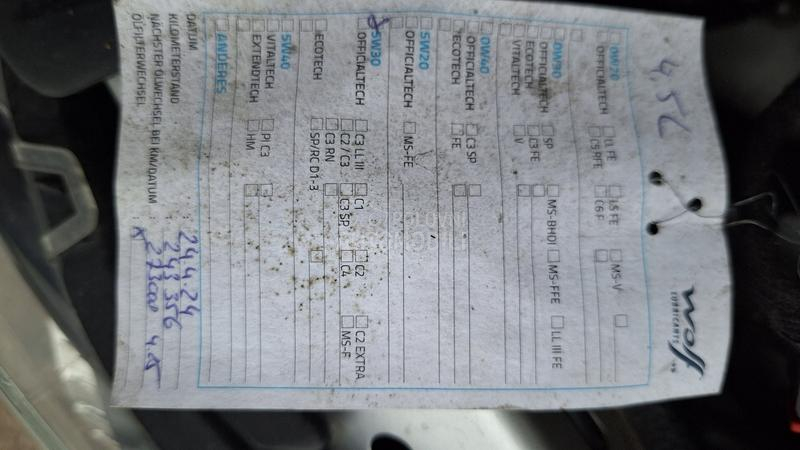 4,5L
Wolf
LUBRICANTS
0W20
OFFICIALTECH LL FE LS FE MS-V
C5 RFE C6 F
0W30
OFFICIALTECH SP MS-BHDI MS-FFE LL III FE
ECOTECH C3 FE
VITALTECH V
0W40
OFFICIALTECH C3 SP
ECOTECH FE
5W20
OFFICIALTECH MS-FE
5W30
OFFICIALTECH C3 LL III C1 C2 C2 EXTRA
C2 / C3 C3 SP C4 MS-F
C3 RN
ECOTECH SP/RC D1-3
5W40
VITALTECH PI C3
EXTENDTECH HM
ANDERES
DATUM : 24.4.24
KILOMETERSTAND : 243 356
NÄCHSTER ÖLWECHSEL BEI KM/DATUM : 273000 4.25
ÖLFILTERWECHSEL : x